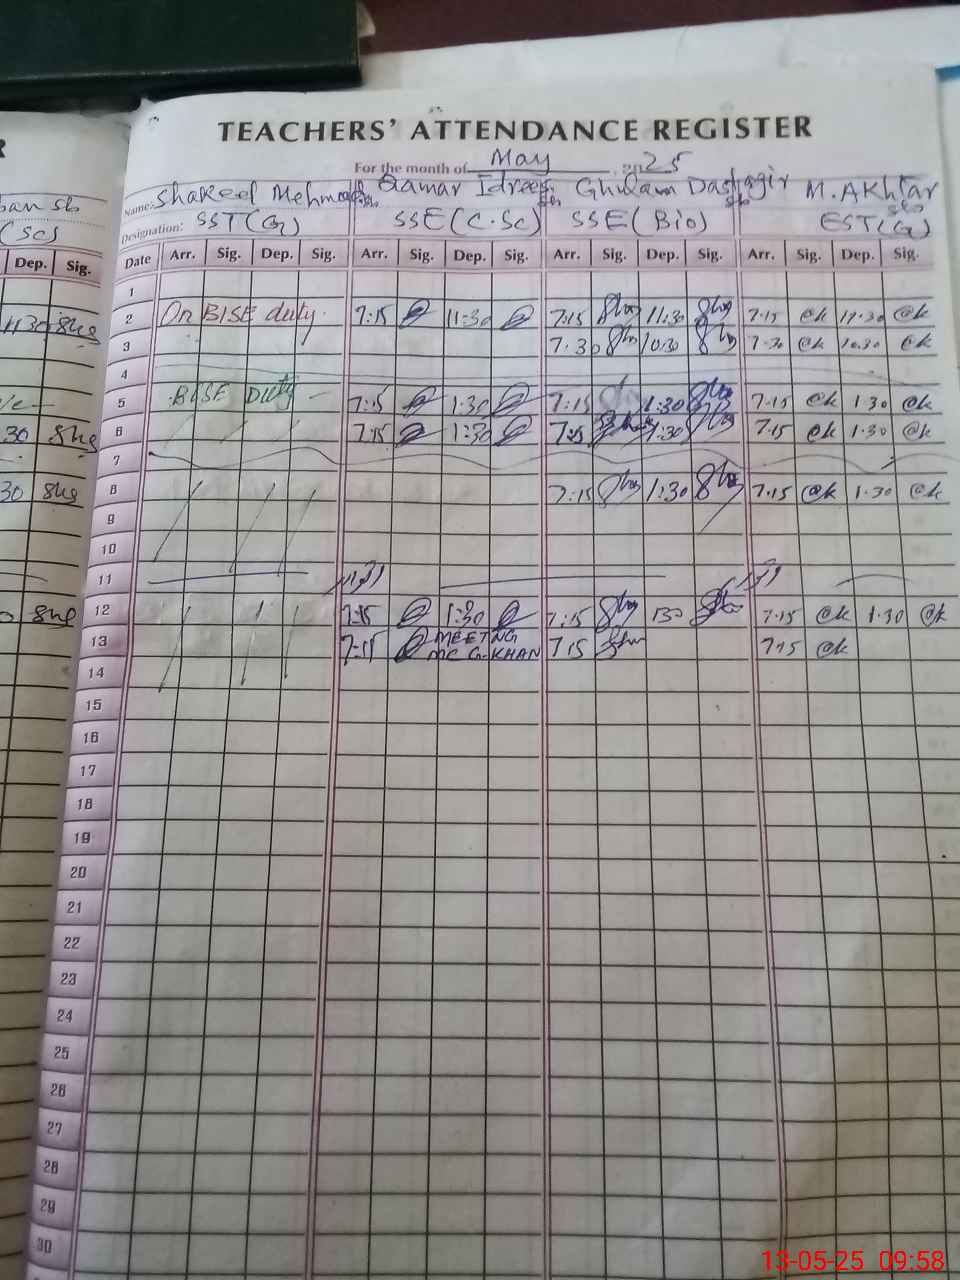 TEACHERS' ATTENDANCE REGISTER
For the month of May 2025
Name: Shakeel Mehmood Qamar Idrees Ghulam Dastagir M. Akhtar
Designation: SST(G) SSE(C.Sc) SSE(Bio) EST(G)
Dep. Sig. Date Arr. Sig. Dep. Sig. Arr. Sig. Dep. Sig. Arr. Sig. Dep. Sig. Arr. Sig. Dep. Sig.
1
11.30 2 On BISE duty. 7:15 11:30 7:15 11:30 7.15 @k 11.30 @k
3 7.30 10:30 7.30 @k 10.30 @k
4
5 BISE Duty 7:15 1:30 7:15 1:30 7.15 @k 1.30 @k
30 6 7:15 1:30 7:15 1:30 7.15 @k 1.30 @k
7
30 8 7:15 1:30 7.15 @k 1.30 @k
9
10
11
12 7:15 1:30 7:15 130 7.15 @k 1.30 @k
13 7:15 MEETING 7:15 7.15 @k
MC G-KHAN
14
15
16
17
18
19
20
21
22
23
24
25
26
27
28
29
30
13-05-25 09:58